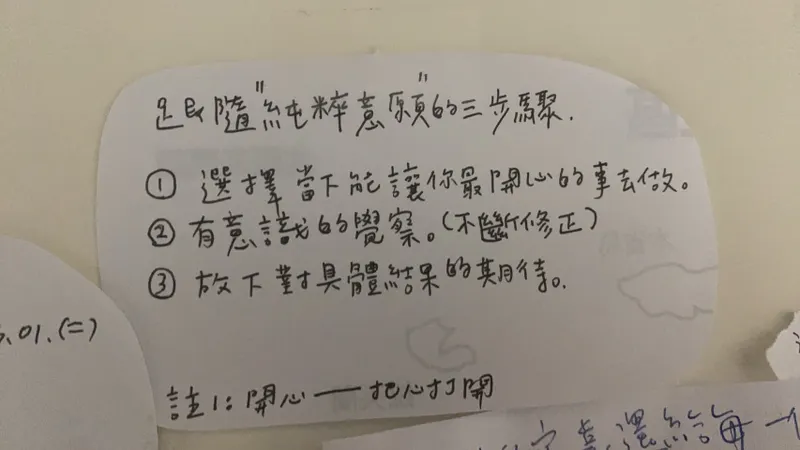 跟隨"純粹意願"的三步驟.
① 選擇當下能讓你最開心的事去做。
② 有意識的覺察。(不斷修正)
③ 放下對具體結果的期待。
註1:開心——把心打開
.01.(二)
還給每一